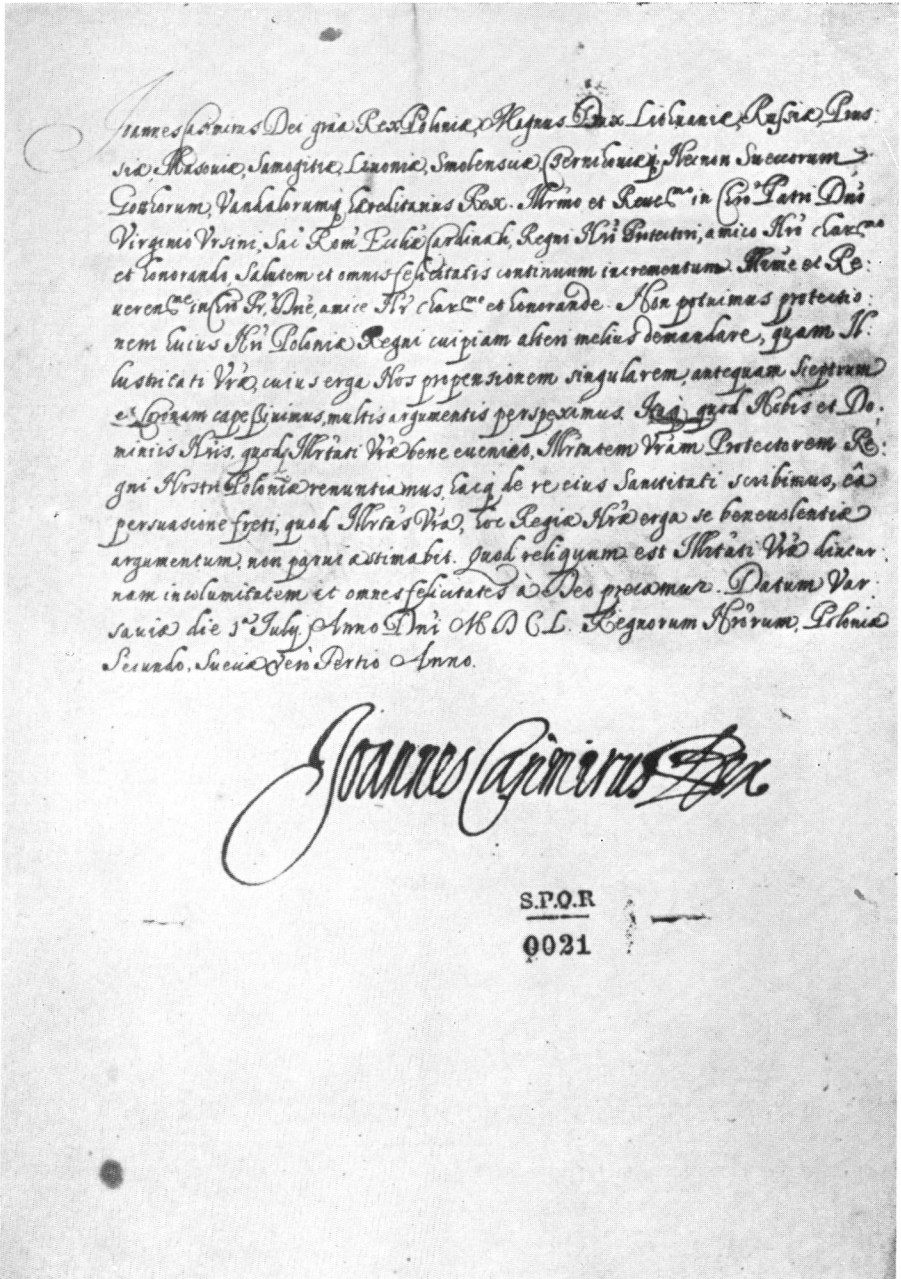 Joannes Casimirus Dei grãa Rex Poloniæ, Magnus Dux Lithuaniæ, Russiæ, Prus:
siæ, Masoviæ, Samogitiæ, Livoniæ, Smolensciæ, Czernihoviæq, Necnon Suecorum
Gothorum, Vandalorumq hæreditarius Rex. Illr̃mo et Reuel͠mo in Chrõ Patri Dnõ
Virginio Vrsini, Sac̃ Rom̃ Eccliæ Cardinali, Regni Nr̃i Protectori, amico Nr̃o char͠mo
et honorando, Salutem et omnis felicitatis continuum incrementum. Illr̃me et Re:
ueren͠me in Chrõ Pr̃, Dnẽ, amice Nr̃ char͠me et honorande. Non potuimus protectio:
nem huius Nr̃i Poloniæ Regni cuipiam alteri melius demandare, quam Il:
lustritati Vr̃æ, cuius erga Nos propensionem singularem, antequam Sceptrum
et Coronam capessiuimus, multis argumentis perspeximus. Itaq, quod Nobis et Do:
miniis Nr̃is, quodq Illr̃tati Vr̃æ bene eueniat, Illr̃tatem Vr̃am Protectorem Re:
gni Nostri Poloniæ renuntiamus, hacq de re eius Sanctitati scribimus, eâ
persuasione freti, quod Illr̃tas Vr̃a, hoc Regiæ Nr̃æ erga se beneuolentiæ
argumentum, non parui æstimabit. Quod reliquum est Illr̃tati Vr̃æ diutur:
nam incolumitatem et omnes felicitates à Deo precamur. Datum Var:
sauiæ die 1.ª July. Anno Dnĩ M D C L. Regnorum Nr̃orum, Poloniæ
Secundo, Sueciæ verò Tertio Anno.
Joannes Casimirus Rex
S.P.Q.R
0021